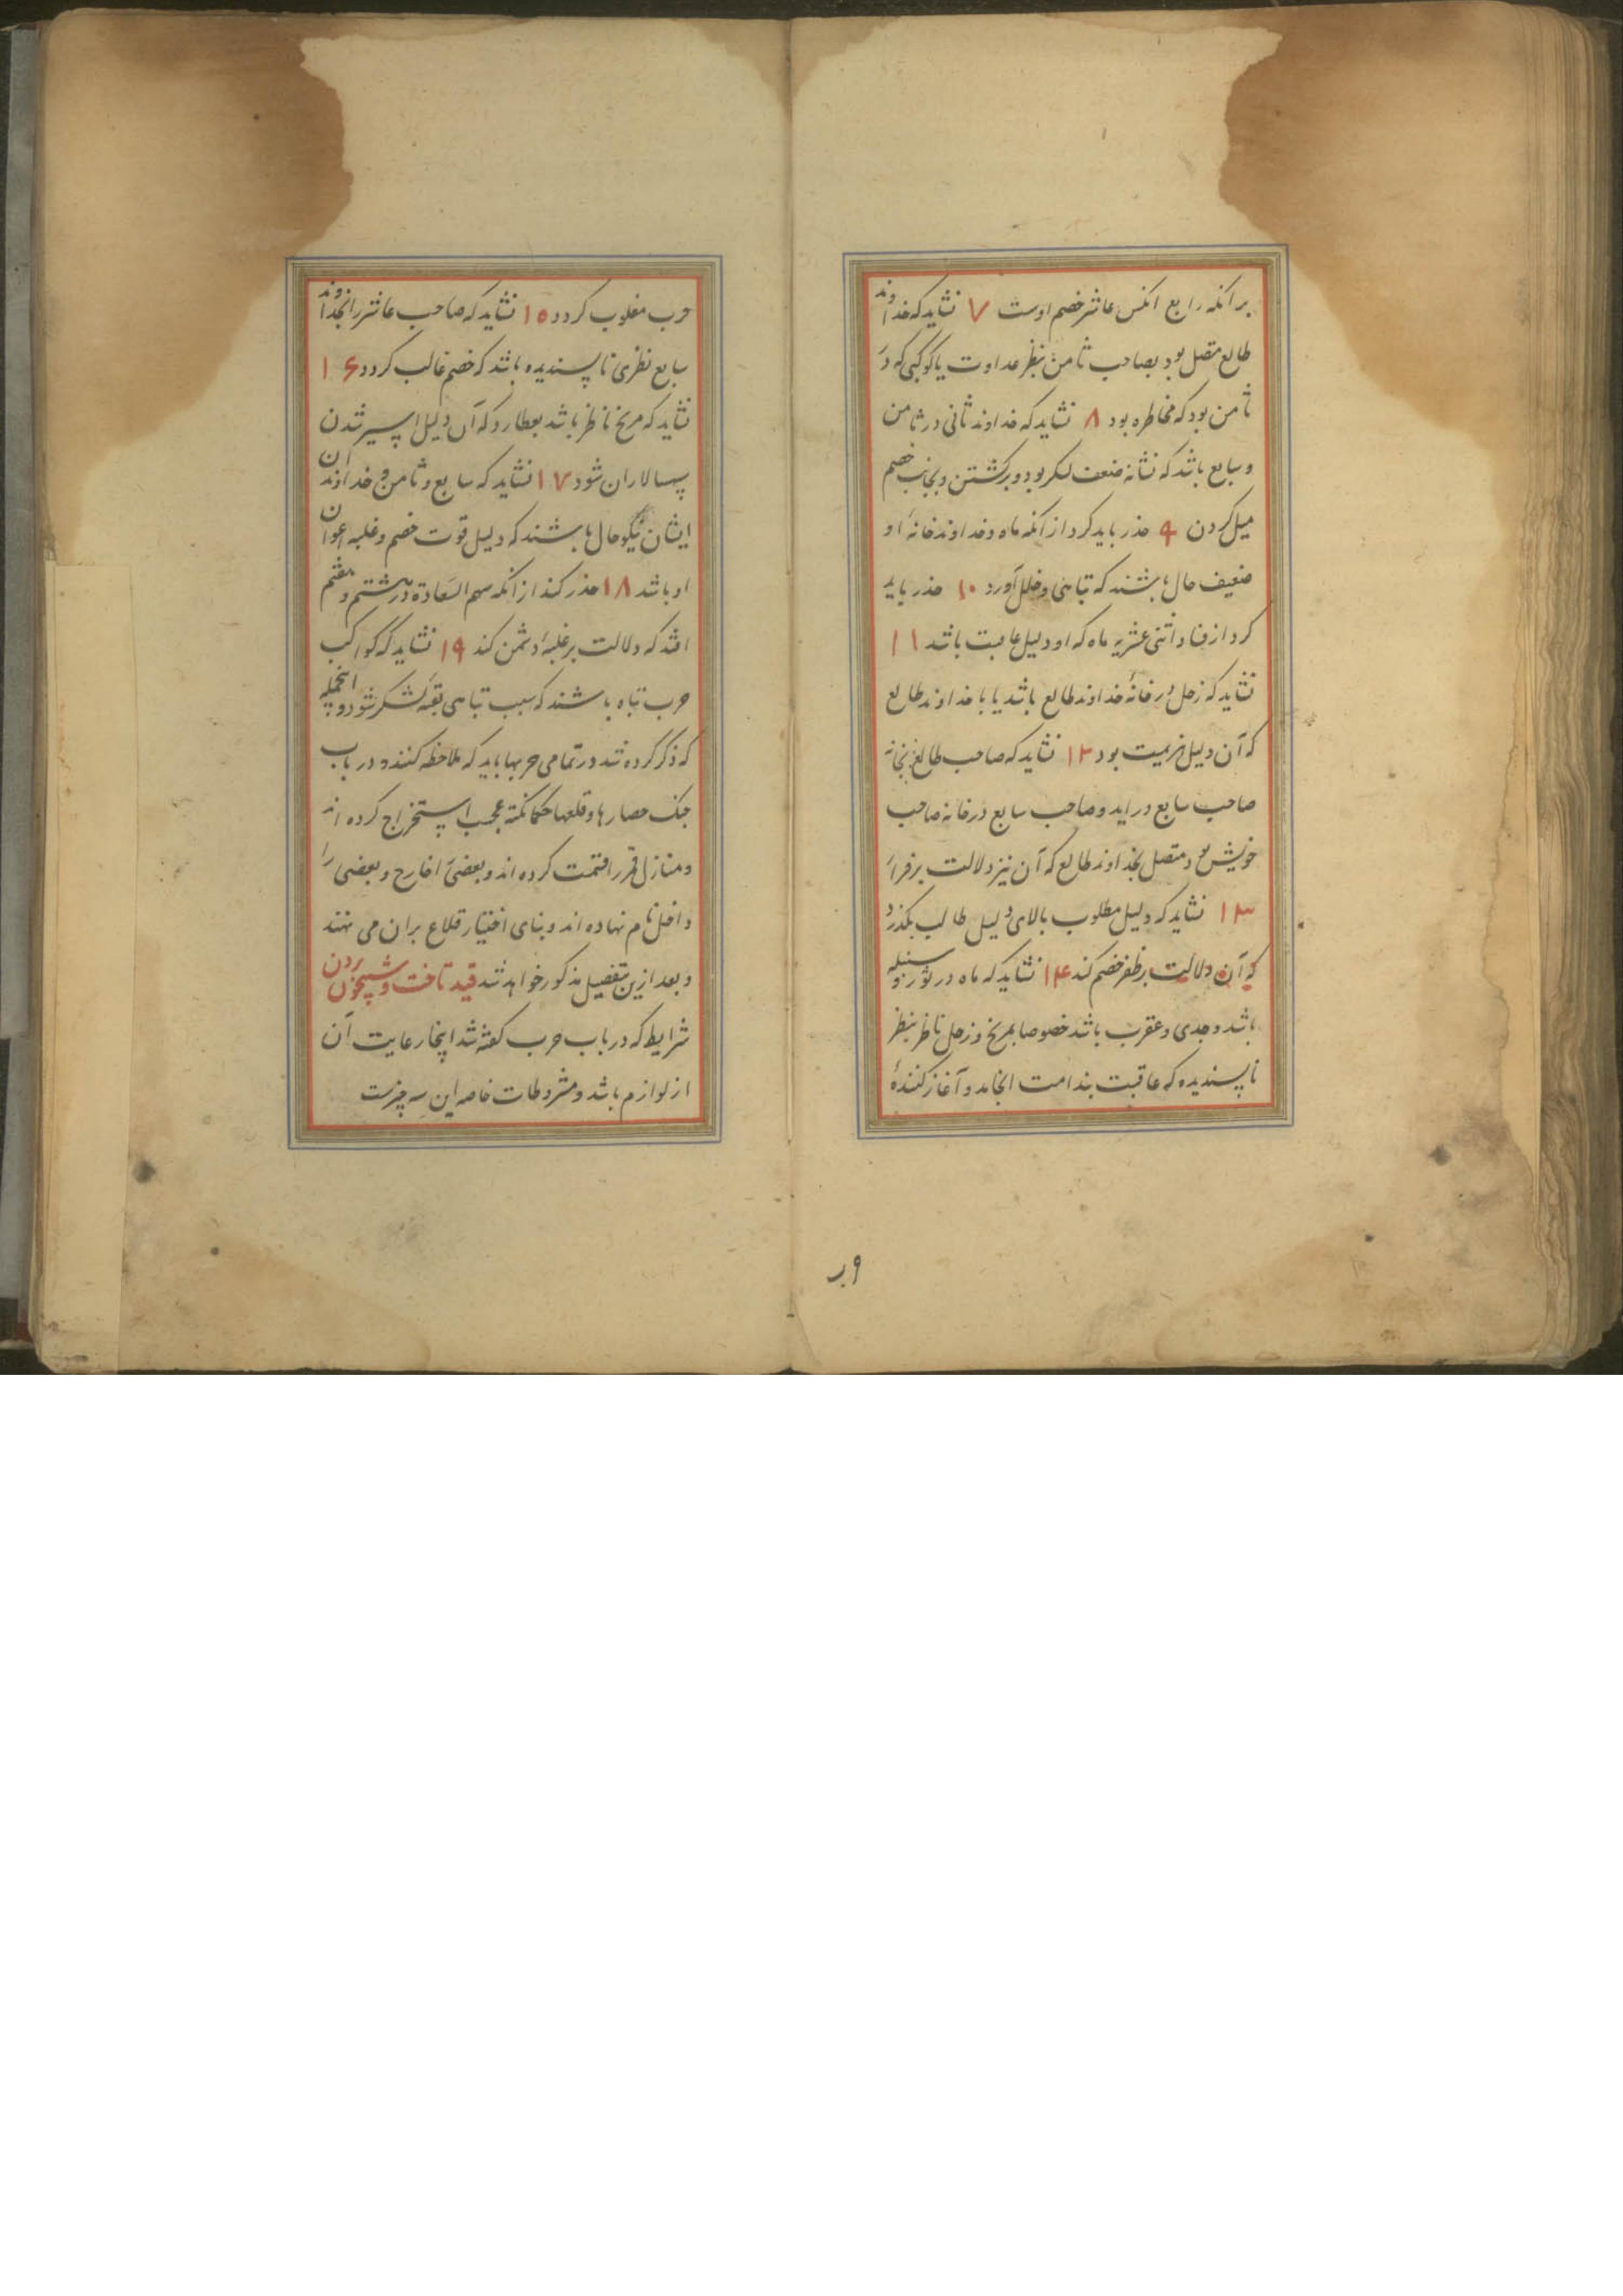 بر آنکه رابع آنکس عاشر خصم اوست ۷ نشاید که خداوند
طالع متصل بود بصاحب ثامن بنظر عداوت یا کوکبی که در
ثامن بود که مخاطره بود ۸ نشاید که خداوند ثانی در ثامن
و سابع باشد که نشانه ضعف لشکر بود و برکشتن و بجانب خصم
میل کردن ۹ حذر باید کرد از آنکه ماه و خداوند خانهٔ او
ضعیف حال باشند که تباهی و خلل آورد ۱۰ حذر باید
کرد از فساد اثنی عشریه ماه که او دلیل عاقبت باشد ۱۱
نشاید که زحل در خانهٔ خداوند طالع باشد یا با خداوند طالع
که آن دلیل هزیمت بود ۱۲ نشاید که صاحب طالع بخانه
صاحب سابع در اید و صاحب سابع در خانه صاحب
خویش بود متصل بخداوند طالع که آن نیز دلالت بر فرار
۱۳ نشاید که دلیل مطلوب بالای دلیل طالب بگذرد
که آن دلالت بر ظفر خصم کند ۱۴ نشاید که ماه در ثور و سنبله
باشد و جدی و عقرب باشد خصوصا بمریخ و زحل ناظر بنظر
ناپسندیده که عاقبت بندامت انجامد و آغاز کنندهٔ
حرب مغلوب کردد ۱۵ نشاید که صاحب عاشر را بخداوند
سابع نظری ناپسندیده باشد که خصم غالب کردد ۱۶
نشاید که مریخ ناظر باشد بعطارد که آن دلیل اسیر شدن
سپهسالاران شود ۱۷ نشاید که سابع و ثامن و خداوندان
ایشان نیکو حال باشند که دلیل قوت خصم و غلبه اعوان
او باشد ۱۸ حذر کند از آنکه سهم السعادة در هشتم و هفتم
افتد که دلالت بر غلبهٔ دشمن کند ۱۹ نشاید که کواکب
حرب تباه باشند که سبب تباهی بقیه لشکر شود و اینجمله
که ذکر کرده شد در تمامی حربها باید که ملاحظه کنند و در باب
جنک حصارها و قلعها حکما نکته عجب استخراج کرده اند
و منازل قمر را قسمت کرده اند و بعضی را خارج و بعضی را
داخل نام نهاده اند و بنای اختیار قلاع بران می نهند
و بعد ازین بتفصیل مذکور خواهد شد قید تاخت و شبیخون کردن
شرایط که در باب حرب کفته شد اینجا رعایت آن
از لوازم باشد و مشروطات خاصه این سه چیزست